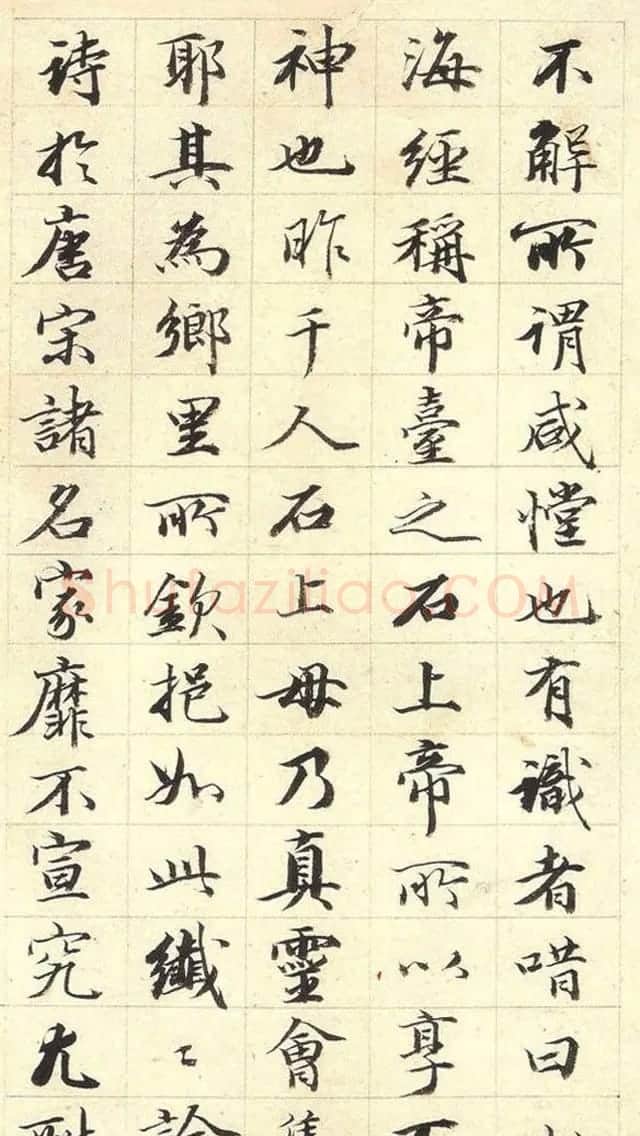 不解所謂咸憆也有識者唶曰
海經稱帝臺之石上帝所以享
神也昨千人石上毋乃真靈會
耶其為鄉里所欽挹如此纖〻
詩於唐宋諸名家靡不宣究尤
Shufaziliao.COM